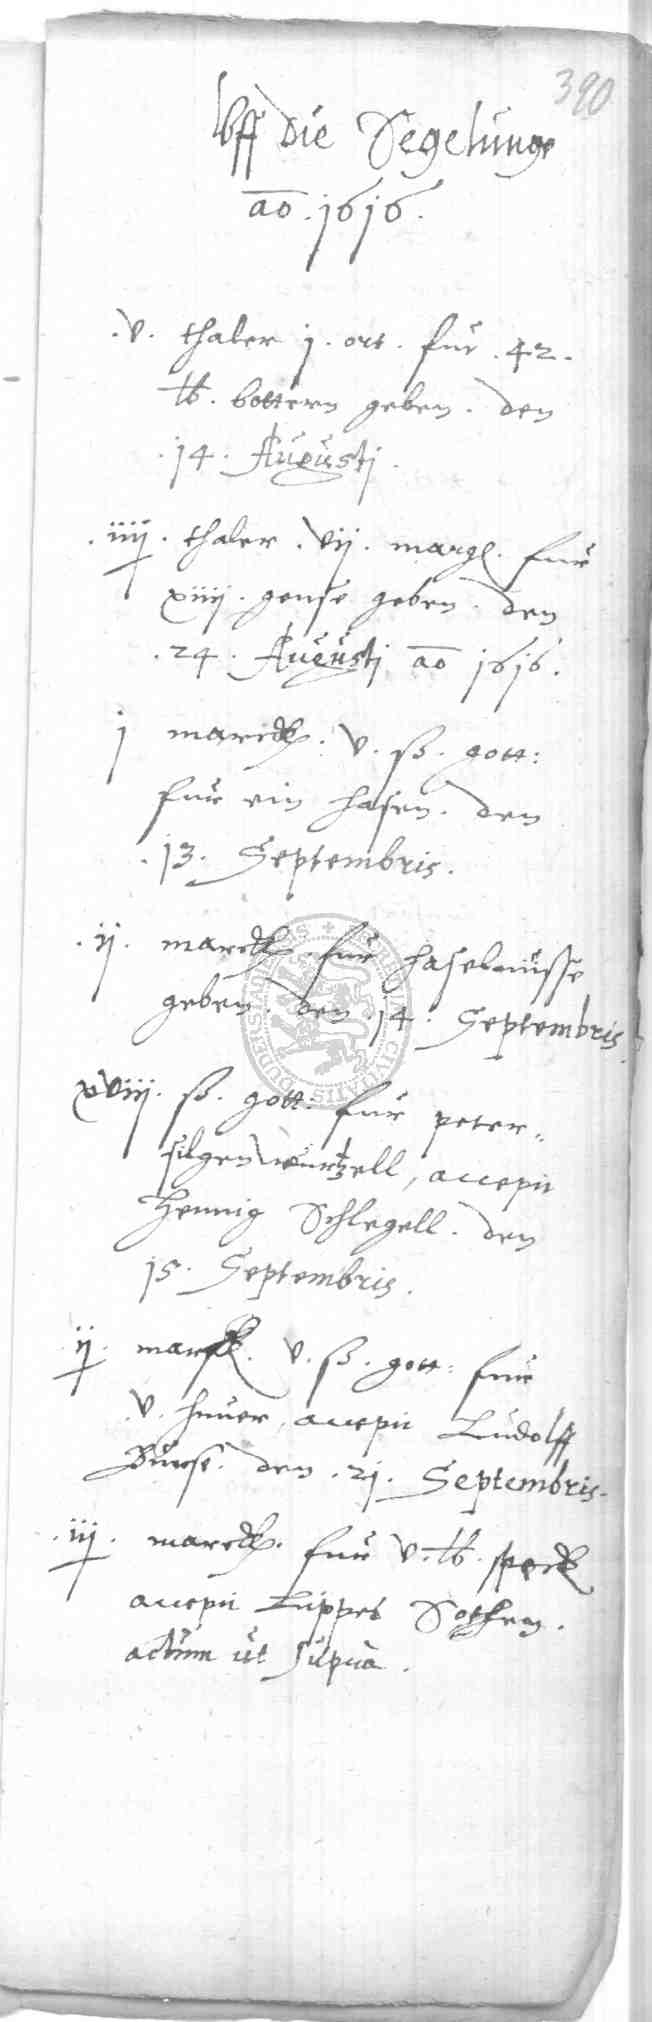 390
Vff die Segelunge
ao. 1616.
.v. thaler j. ort. fur. 42.
lb. bottern geben. den
.14. Augustj.
.iiij. thaler. vij. margl. fur
xiiij. gense geben. den
.24. Augustj ao 1616.
j marck. v. ß. gott:
fur ein hasen. den
.13. Septembris.
.ij. marck fur haselnusse
geben. den .14. Septembris.
xviij. ß. gott: fur peter-
silgen wurtzell, accepit
Hennig Schlegell. den
15. Septembris.
ij marck. v. ß. gott: fur
.v. huner, accepit Ludolff
den .21. Septembris.
.iij. marck. fur v. lb. speck
accepit Lippes Sothen.
actum ut supra.